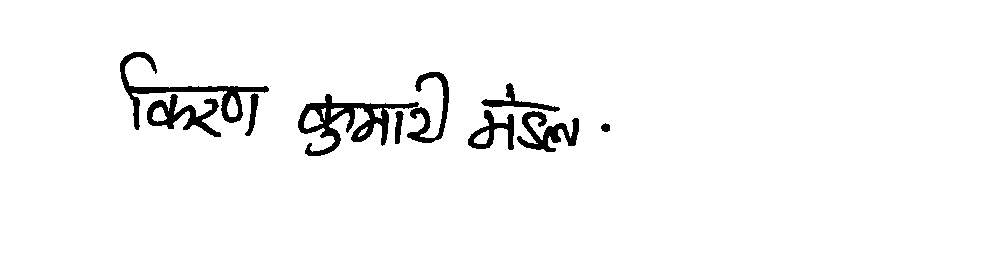 किरण कुमारी मंडल.